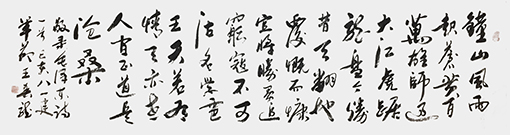 鐘山風雨
起蒼黄百
萬雄師過
大江虎踞
龍盤今勝
昔天翻地
覆慨而慷
宜將剩勇追
窮寇不可
沽名學霸
王天若有
情天亦老
人间正道是
滄桑
敬录毛泽东诗
一首